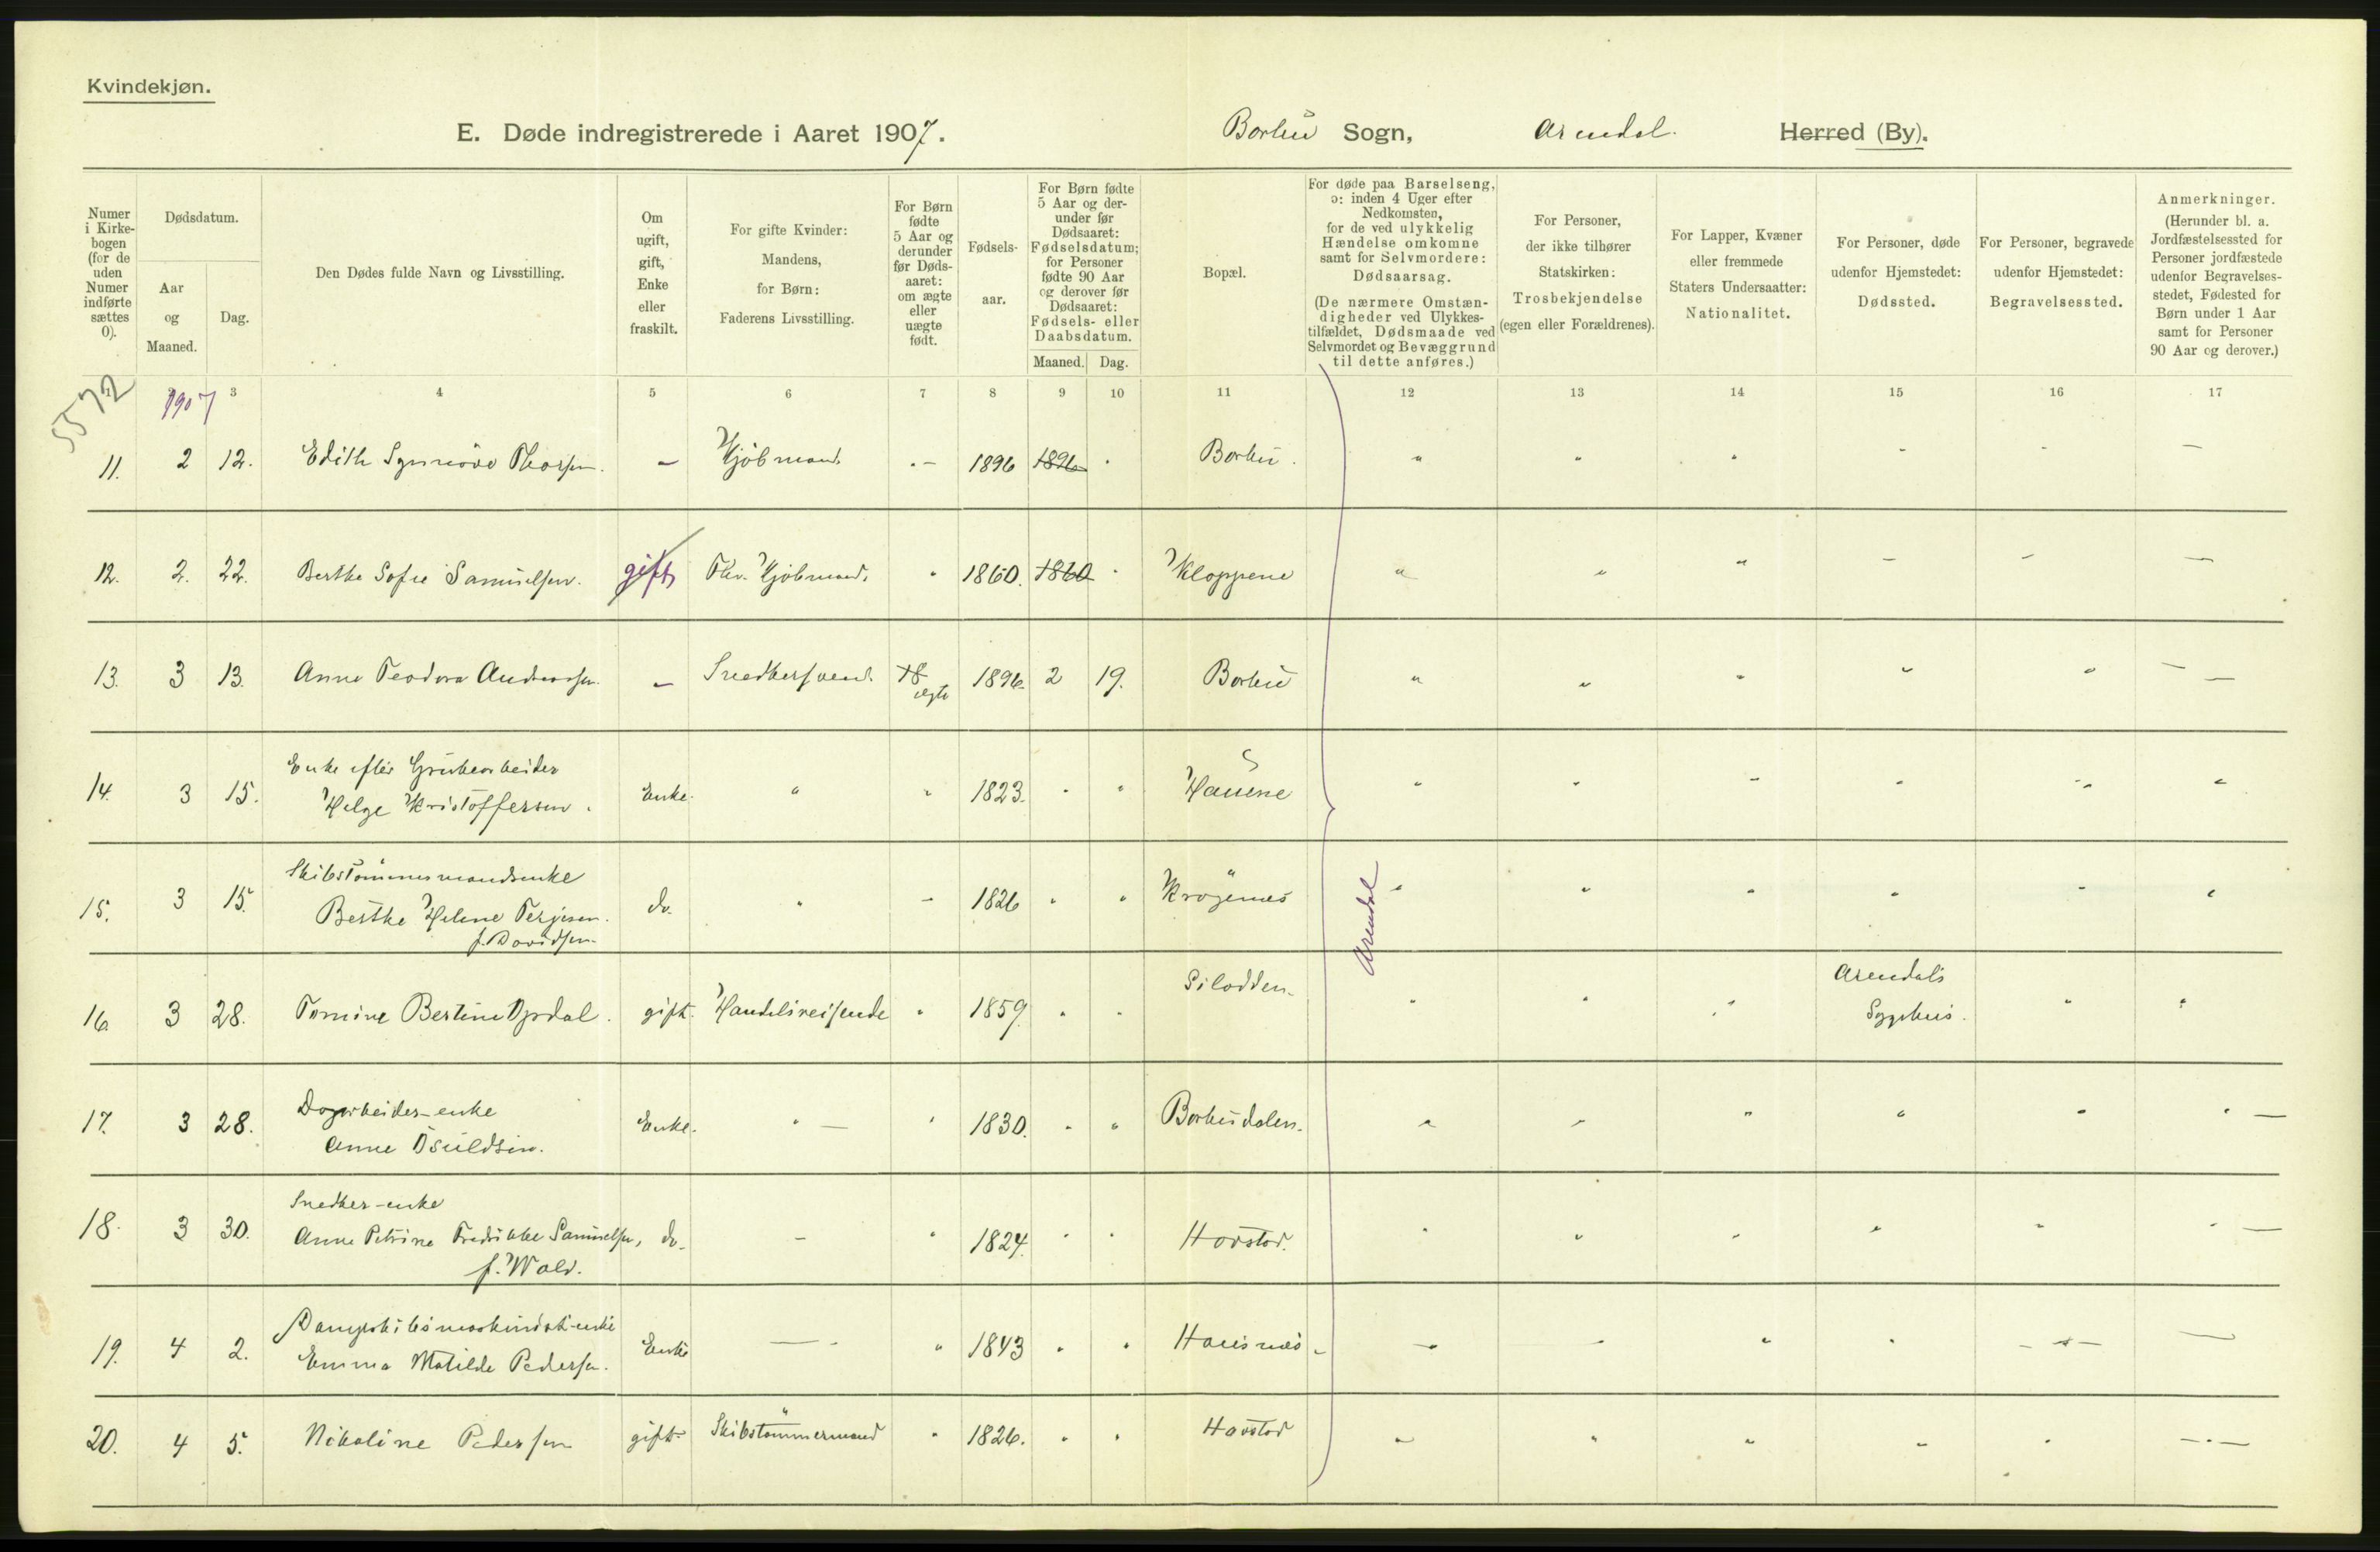 Kvindekjøn.
E. Døde indregistrerede i Aaret 1907.
Barbu Sogn,
Arendal.
Herred (By).
Numer i Kirkebogen (for de uden Numer indførte sættes 0).
Dødsdatum.
Aar og Maaned.
Dag.
Den Dødes fulde Navn og Livsstilling.
Om ugift, gift, Enke eller fraskilt.
For gifte Kvinder: Mandens, for Børn: Faderens Livsstilling.
For Børn fødte 5 Aar og derunder før Dødsaaret: om ægte eller uægte født.
Fødselsaar.
For Børn fødte 5 Aar og derunder før Dødsaaret: Fødselsdatum; for Personer fødte 90 Aar og derover før Dødsaaret: Fødsels- eller Daabsdatum.
Maaned. Dag.
Bopæl.
For døde paa Barselseng, ɔ: inden 4 Uger efter Nedkomsten, for de ved ulykkelig Hændelse omkomne samt for Selvmordere: Dødsaarsag.
(De nærmere Omstændigheder ved Ulykkestilfældet, Dødsmaade ved Selvmordet og Bevæggrund til dette anføres.)
For Personer, der ikke tilhører Statskirken: Trosbekjendelse (egen eller Forældrenes).
For Lapper, Kvæner eller fremmede Staters Undersaatter: Nationalitet.
For Personer, døde udenfor Hjemstedet: Dødssted.
For Personer, begravede udenfor Hjemstedet: Begravelsessted.
Anmerkninger.
(Herunder bl. a. Jordfæstelsessted for Personer jordfæstede udenfor Begravelsesstedet, Fødested for Børn under 1 Aar samt for Personer 90 Aar og derover.)
1 3 4 5 6 7 8 9 10 11 12 13 14 15 16 17
5572
1907
11. 2 12. Edith Synnöve Thorsen. - Kjöbmand. - 1896 1896 Barbu. " " " - - —
12. 2. 22. Berthe Sofie Samuelsen. gift Fhv. Kjöbmand. " 1860. 1860 Kloppene " " " - - —
13. 3 13. Anne Teodora Andreassen. - Snedkersvend. ægte 1896. 2 19. Barbu " " " " " —
Enke efter Grubearbeider
14. 3 15. Helge Kristoffersen. Enke. " " 1823. " " Hauene
Skibstömmermandsenke
15. 3 15. Berthe Helene Terjesen. do. " - 1826 " " Krögenes
f. Davidsen.
Arendal
16. 3 28. Tomine Bertine Opdal. gift. Handelsreisende " 1859. " " Silodden. Arendals
Sygehus.
Dagarbeider-enke
17. 3 28. Anne Osuldsen. Enke. " — 1830. " " Barbudalen.
Snedker-enke
18. 3 30. Anne Petrine Fredrikke Samuelsen, do. - " 1824. " " Havstad.
f. Wold.
Dampskibsmaskinist-enke
19. 4 2. Emma Matilde Pedersen. Enke — " 1843 " " Hausnes
20. 4 5. Nikoline Pedersen gift. Skibstömmermand " 1826. " " Havstad